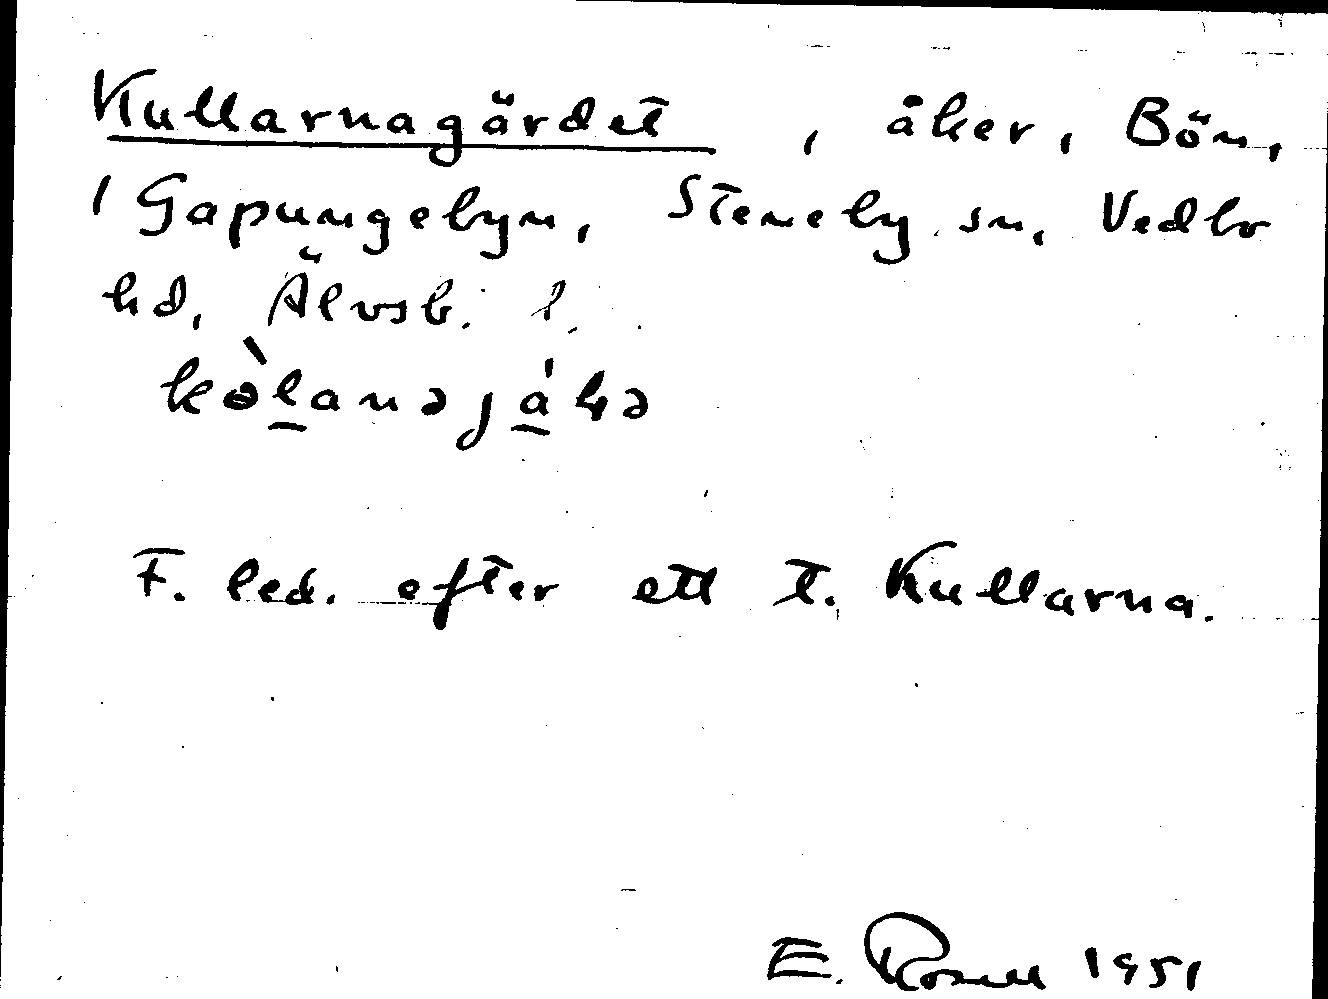 Kullarnagärdet, åker, Bön,
1 Gapungebyn, Steneby sn, Vedbo
hd, Älvsb. l.
F. led. efter ett t. Kullarna.
E. 1951